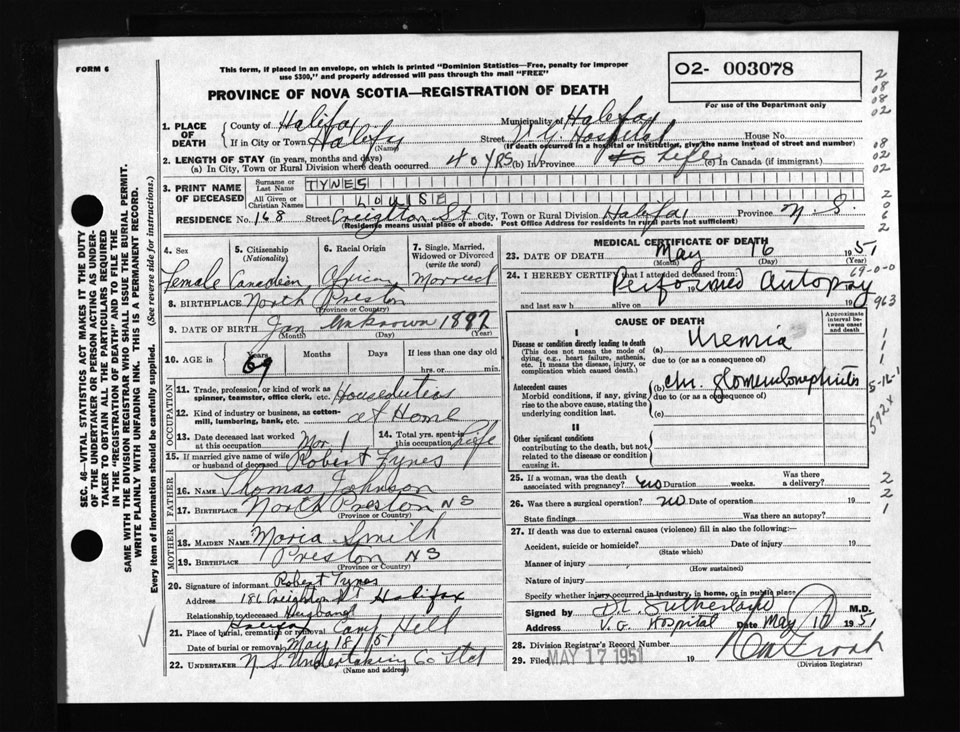 FORM 6
This form, if placed in an envelope, on which is printed "Dominion Statistics—Free, penalty for improper
use $300," and properly addressed will pass through the mail "FREE"
PROVINCE OF NOVA SCOTIA—REGISTRATION OF DEATH
O2- 003078
For use of the Department only
1. PLACE OF DEATH
County of Halifax Municipality of Halifax
If in City or Town Halifax (Name) Street V. G. Hospital House No.
(If death occurred in a hospital or institution, give the name instead of street and number)
2. LENGTH OF STAY (in years, months and days)
(a) In City, Town or Rural Division where death occurred 40 YRS (b) In Province to Life (c) in Canada (if immigrant)
3. PRINT NAME OF DECEASED
Surname or Last Name TYNES
All Given or Christian Names LOUISE
RESIDENCE No. 168 Street Creighton St City, Town or Rural Division Halifax Province N. S.
(Residence means usual place of abode. Post Office Address for residents in rural parts not sufficient)
4. Sex
Female
5. Citizenship (Nationality)
Canadian
6. Racial Origin
African
7. Single, Married, Widowed or Divorced (write the word)
Married
8. BIRTHPLACE North Preston
(Province or Country)
9. DATE OF BIRTH Jan Unknown 1882
(Month) (Day) (Year)
10. AGE in Years Months Days If less than one day
69 hrs. or min.
OCCUPATION
11. Trade, profession, or kind of work as spinner, teamster, office clerk, etc. Houseduties
12. Kind of industry or business, as cotton-mill, lumbering, bank, etc. at Home
13. Date deceased last worked at this occupation Mar 1
14. Total yrs. spent in this occupation Life
15. If married give name of wife or husband of deceased Robert Tynes
FATHER
16. NAME Thomas Johnson
17. BIRTHPLACE North Preston NS
(Province or Country)
MOTHER
18. MAIDEN NAME Maria Smith
19. BIRTHPLACE Preston NS
(Province or Country)
20. Signature of informant Robert Tynes
Address Creighton St Halifax
Relationship to deceased Husband
21. Place of burial, cremation or removal Camp Hill
Date of burial or removal May 18/51
22. UNDERTAKER N S Undertaking Co Ltd
(Name and address)
MEDICAL CERTIFICATE OF DEATH
23. DATE OF DEATH May 16 1951
(Month) (Day) (Year)
24. I HEREBY CERTIFY that I attended deceased from:
Performed Autopsy
69-0-0
and last saw h alive on 19
963
CAUSE OF DEATH
Approximate interval between onset and death
I
Disease or condition directly leading to death
(This does not mean the mode of dying, e.g., heart failure, asthenia, etc. It means the disease, injury, or complication which caused death.)
(a) Uremia
due to (or as a consequence of)
Antecedent causes
Morbid conditions, if any, giving rise to the above cause, stating the underlying condition last.
(b) chr. glomerulonephritis
due to (or as a consequence of)
(c)
II
Other significant conditions
contributing to the death, but not related to the disease or condition causing it.
5-12-1
592x
25. If a woman, was the death associated with pregnancy? no Duration weeks. Was there a delivery?
26. Was there a surgical operation? no Date of operation 19
State findings Was there an autopsy?
27. If death was due to external causes (violence) fill in also the following:—
Accident, suicide or homicide? Date of injury 19
(State which)
Manner of injury
(How sustained)
Nature of injury
Specify whether injury occurred in industry, in home, or in public place
Signed by D. L. Sutherland M.D.
Address V. G. Hospital Date May 1951
28. Division Registrar's Record Number
29. Filed MAY 17 1951 19
(Division Registrar)
SEC. 46—VITAL STATISTICS ACT MAKES IT THE DUTY
OF THE UNDERTAKER OR PERSON ACTING AS UNDER-
TAKER TO OBTAIN ALL THE PARTICULARS REQUIRED
IN THE "REGISTRATION OF DEATH" AND TO FILE THE
SAME WITH THE DIVISION REGISTRAR WHO SHALL ISSUE THE BURIAL PERMIT.
WRITE PLAINLY WITH UNFADING INK. THIS IS A PERMANENT RECORD.
Every item of information should be carefully supplied. (See reverse side for instructions.)
2
08
08
02
08
02
02
2
0
6
2
1
1
1
2
2
1